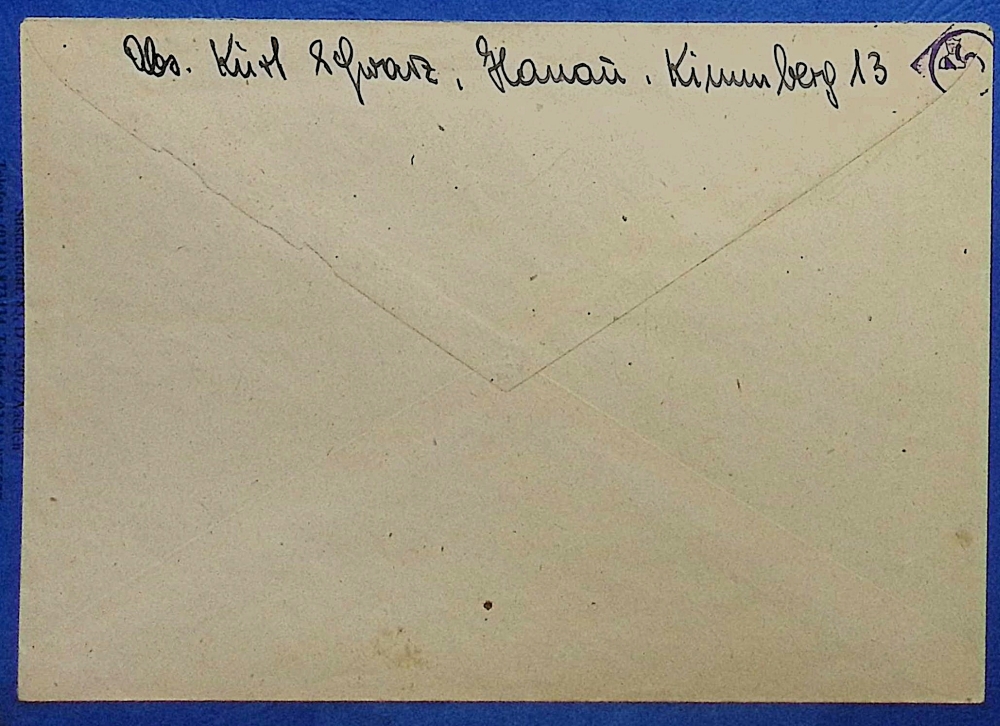 Abs. Kurt Schwarz, Hanau. Kinzigberg 13